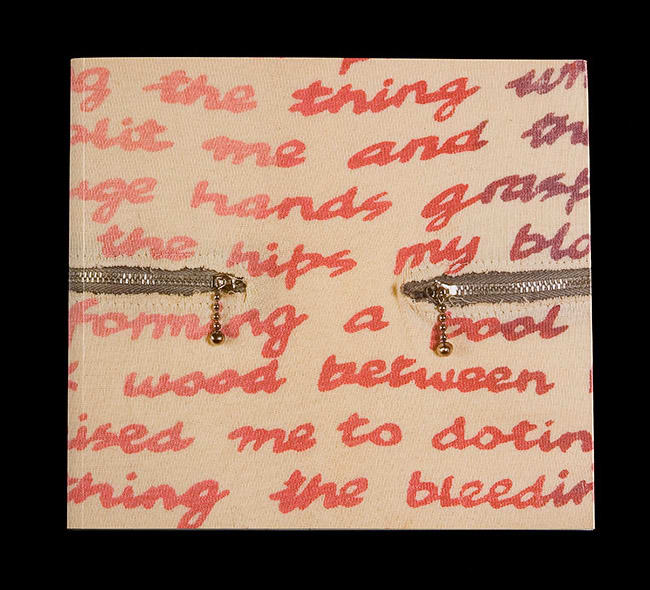 g the thing wh
plit me and the
uge hands grasp
the hips my blo
forming a pool
wood between
ised me to doting
thing the bleedin